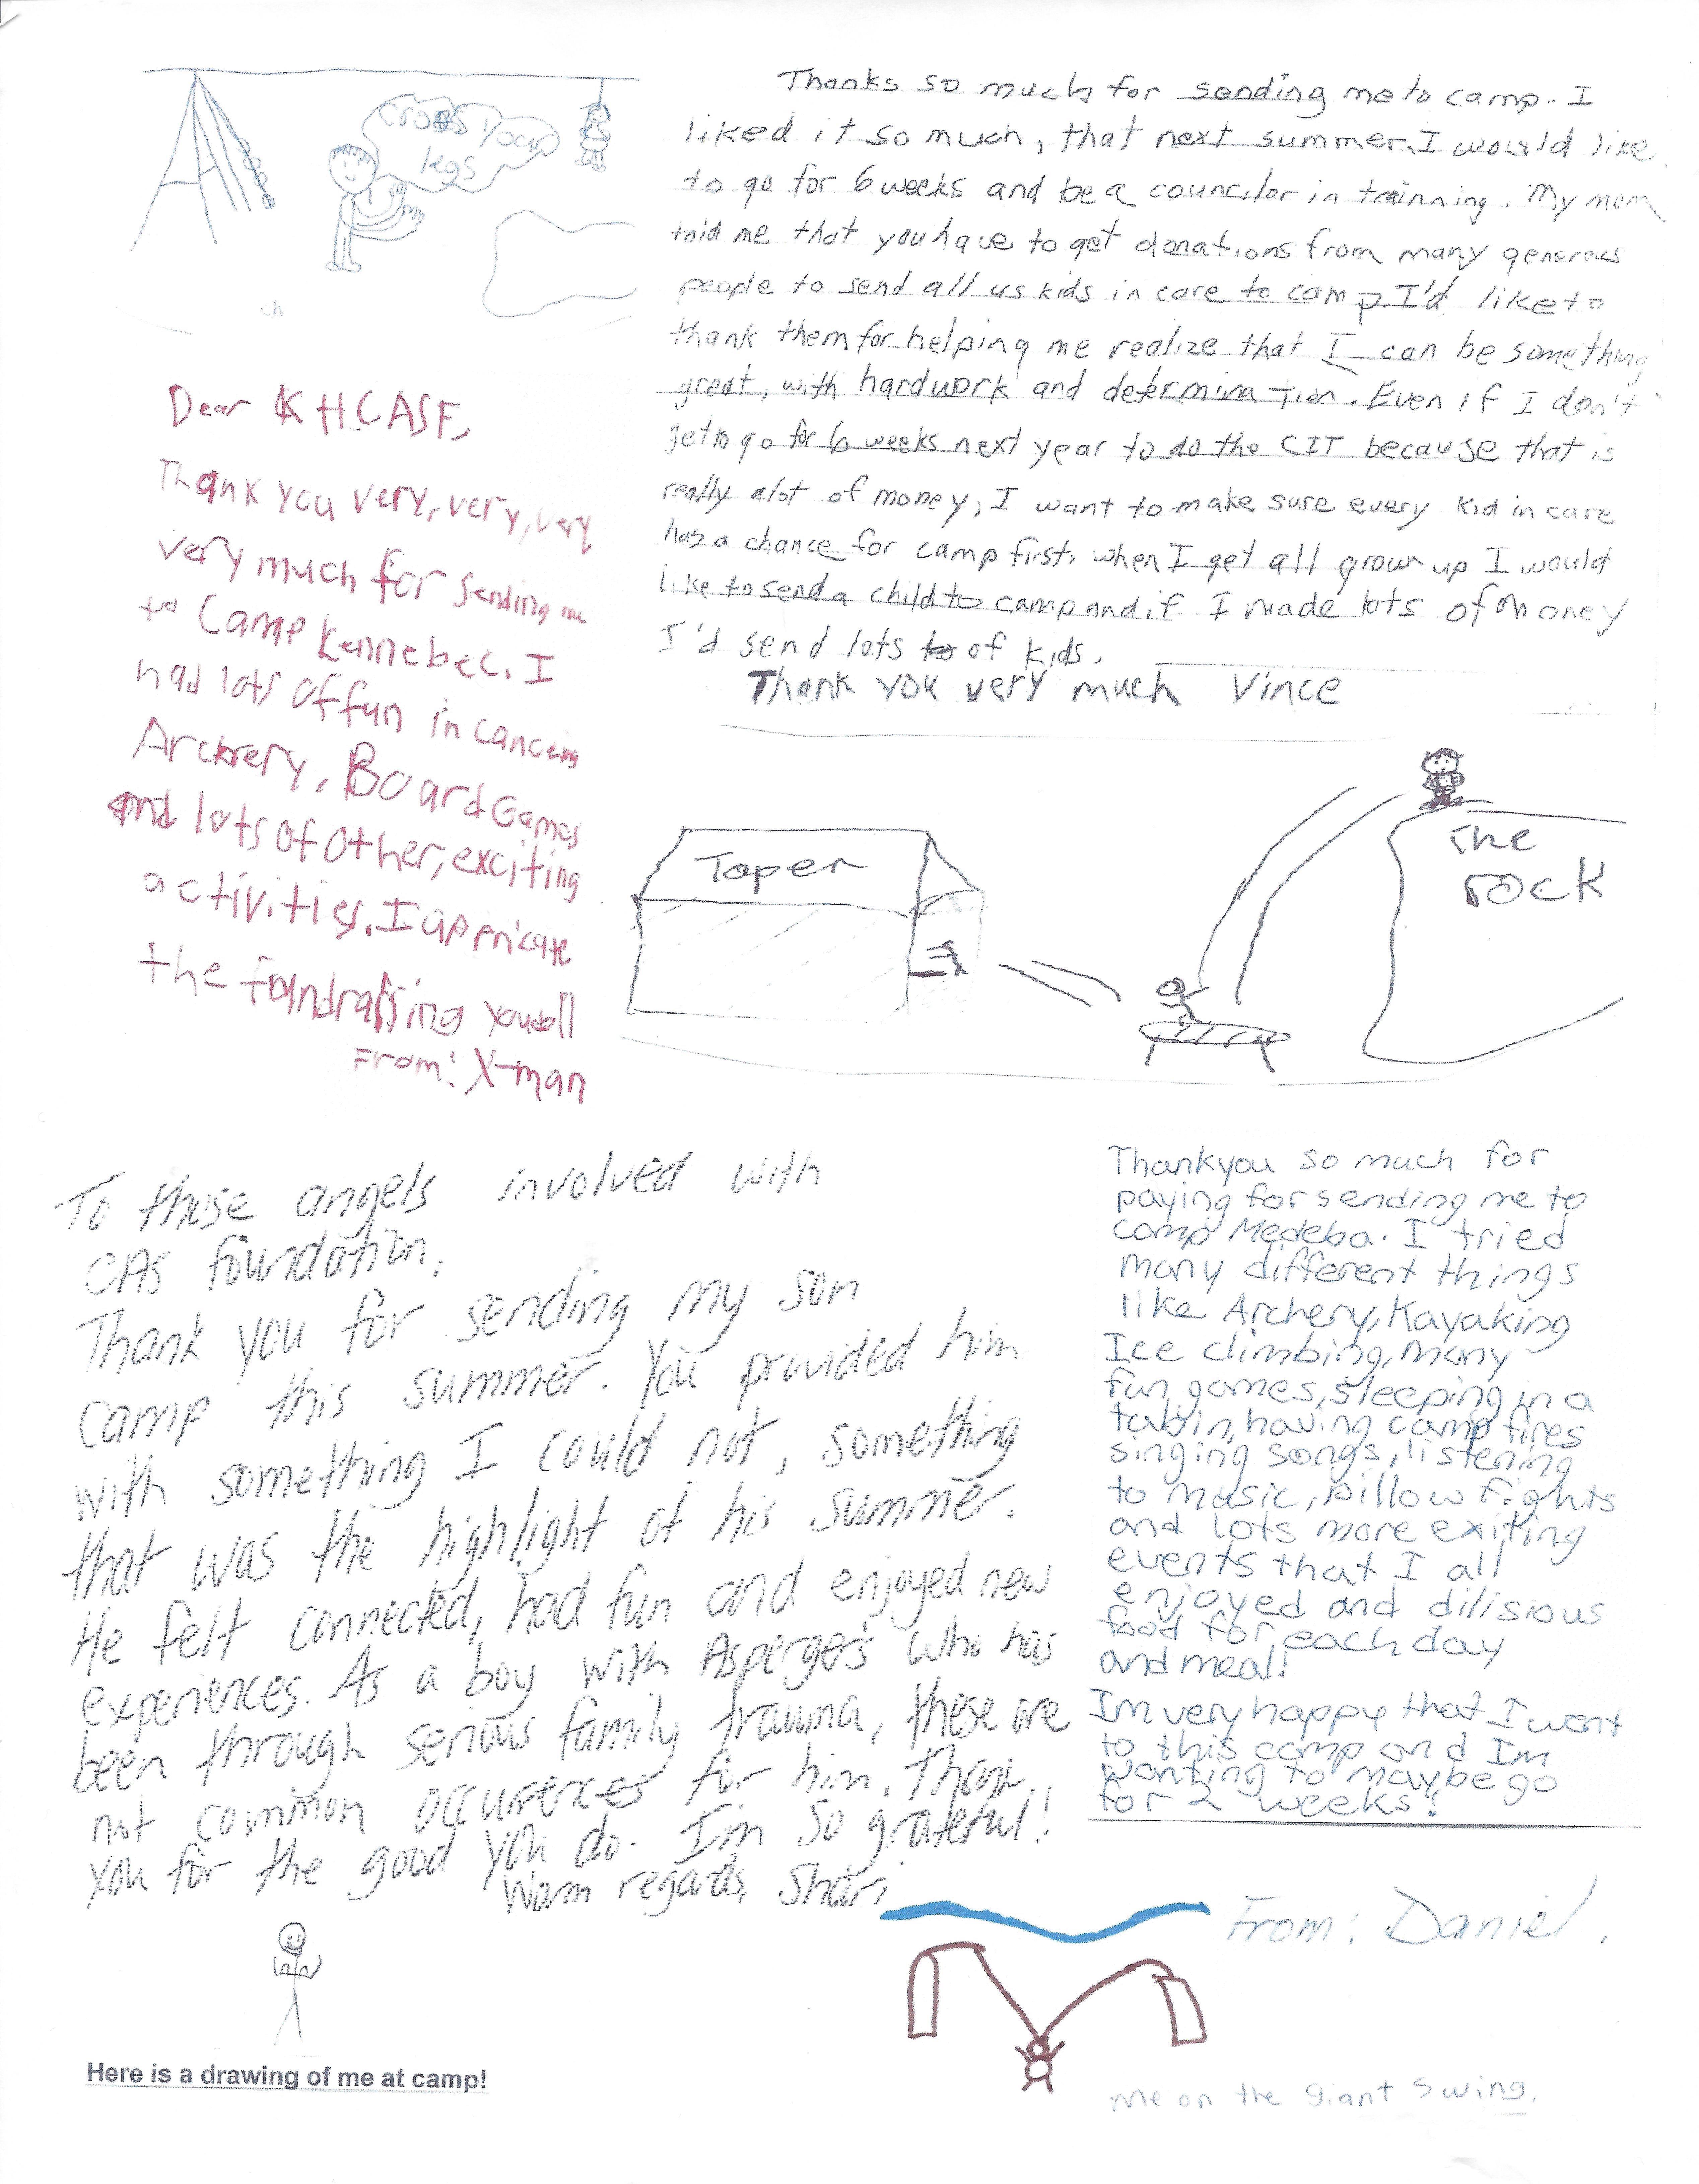 cross your
legs
Thanks so much for sending me to camp. I
liked it so much, that next summer, I would like
to go for 6 weeks and be a councilor in trainning. My mom
told me that you have to get donations from many generous
people to send all us kids in care to camp. I'd like to
thank them for helping me realize that I can be something
great, with hardwork and determination. Even if I don't
get to go for 6 weeks next year to do the CIT because that is
really alot of money, I want to make sure every kid in care
has a chance for camp first, when I get all grown up I would
like to send a child to camp and if I made lots of money
I'd send lots to of kids.
Thank you very much Vince
Dear KHCASF,
Thank you very, very, very
very much for sending me
to Camp Kennebec. I
had lots of fun in canoeing
Archery, Board Games
and lots of other, exciting
activities. I appricate
the fundraising you all
From: X-man
Taper
The
rock
To those angels involved with
CAS foundation,
Thank you for sending my son
camp this summer. You provided him
with something I could not, something
that was the highlight of his summer.
He felt connected, had fun and enjoyed new
experiences. As a boy with Asperger's who has
been through serious family trauma, these are
not common occurences for him. Thank
you for the good you do. I'm so grateful!
Warm regards, Shari
Thankyou so much for
paying for sending me to
camp Medeba. I tried
many different things
like Archery, Kayaking
Ice climbing, Many
fun games, sleeping in a
cabin, having camp fires
singing songs, listening
to music, pillow fights
and lots more exiting
events that I all
enjoyed and dilisious
food for each day
and meal!
Im very happy that I went
to this camp and Im
wanting to maybe go
for 2 weeks!
From: Daniel.
Here is a drawing of me at camp!
me on the giant swing.